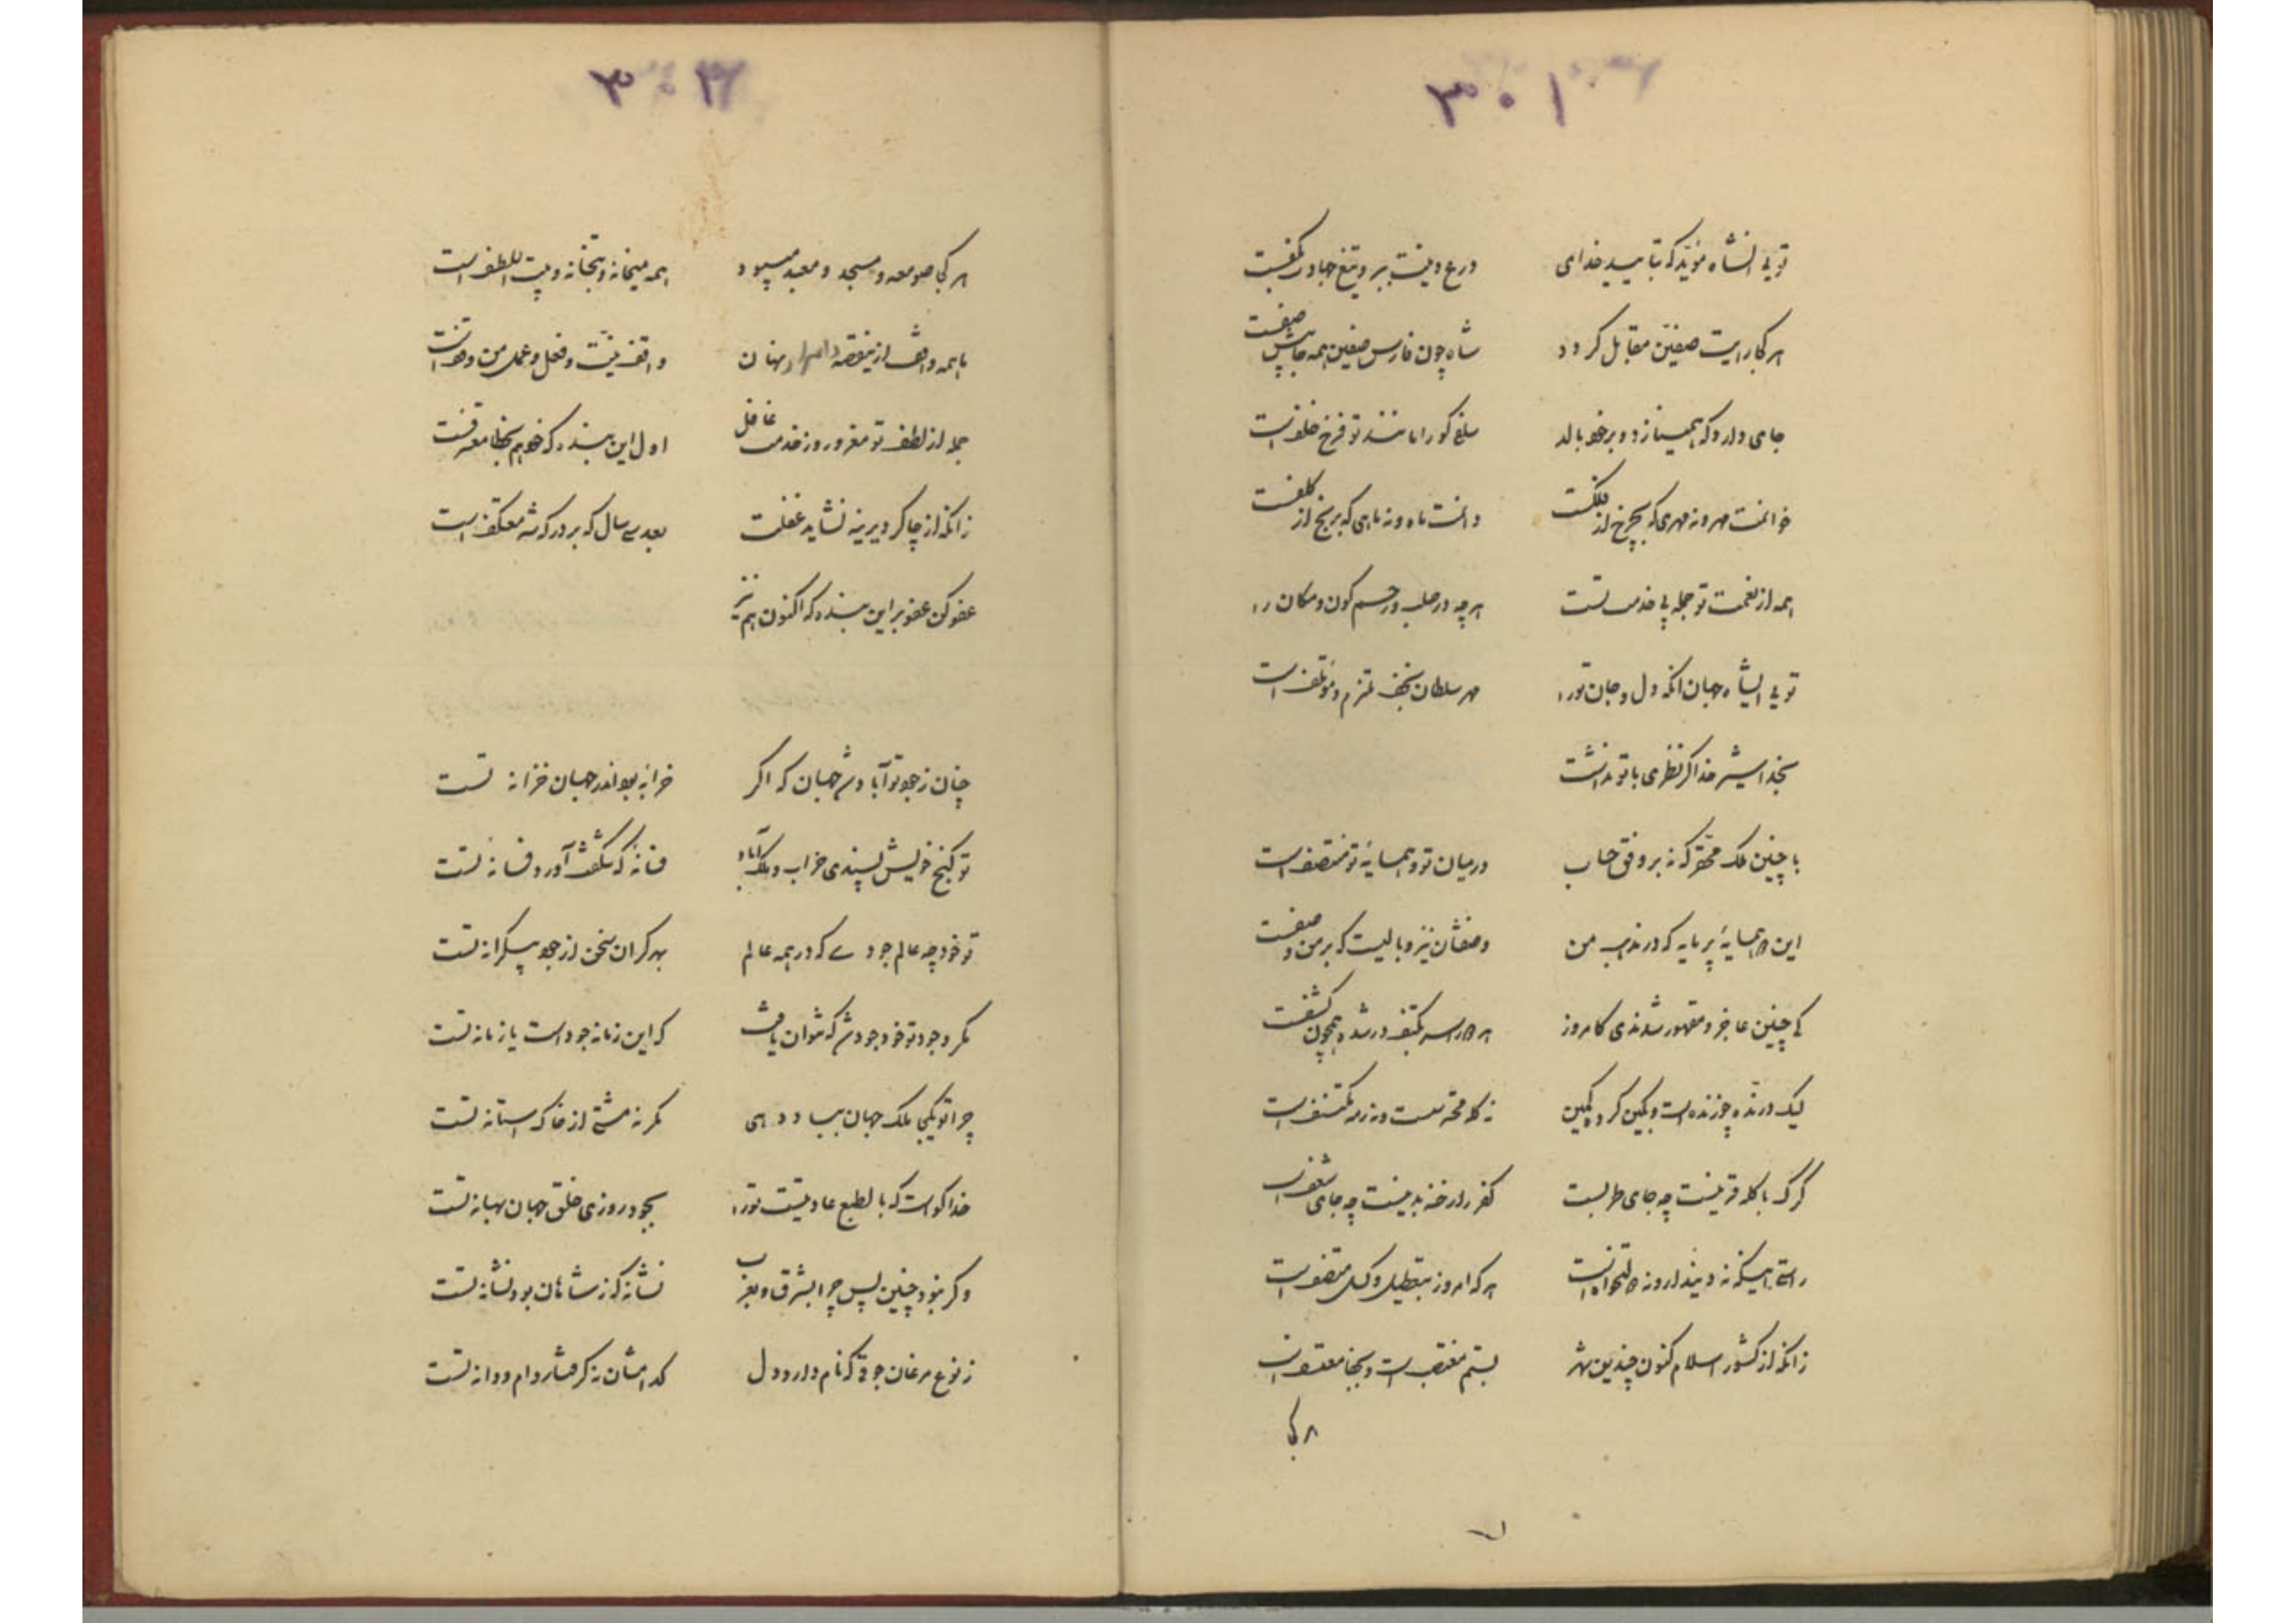 ۳۰۱
تویی آن شاه مؤید که بتایید خدای درع دینت ببر و تیغ جهادت بکفست
هر کجا رایت صفین مقابل گردد شاه چون فارس صفین همه جا پیش صفست
جای دارد که همی نازد و بر خود بالد سلفی کورا مانند تو فرخ خلف است
خوانمت مهر و نه مهری که بچرخ از فلکست دانمت ماه و نه ماهی که برخ از کلفست
همه از نعمت تو جمله پی خدمت تست هرچه در صلب و رحم کون و مکان را
تویی آن شاه جهان آنکه دل و جان تورا مهر سلطان نجف ملتزم و مؤتلف است
بخدا شیر خدا گر نظری با تو نداشت
با چنین ملک محقر که نه بر وفق حساب در میان تو و همسایه تو منتصف است
این دو همسایه پر مایه که در مذهب من وصفشان نیز وبالیست که بر من وصفست
کی چنین عاجز و مقهور شدندی کامروز هر دو را سر بکتف در شده همچون کشفست
لیک درنده چو زنده است و بکین کرده کمین نه گله محترست و نه رمه مکتنف است
گرگ با گله قرینست چه جای طربست کفر را رخنه بدینست چه جای شعف است
راستی اینکه نه دیندار و نه دولتخواه است هر که امروز بتعطیل و کسل متصف است
زانکه از کشور اسلام کنون چندین شهر بستم مغتصب است و بجفا معتسف است
هر کجا
۳۰۲
هر کجا صومعه و مسجد و معبد میبود همه میخانه و بتخانه و بیت اللطف است
با همه واقف ازین قصه و اسرار نهان واقف نیت و فعل و عمل من و تو است
جمله از لطف تو مغرور و ز خدمت غافل اول این بنده که خود هم بخطا معترفست
زانکه از چاکر دیرینه نشاید غفلت بعد سی سال که بر درگه شه معتکف است
عفو کن عفو بر این بنده که اکنون هم نیز
چنان ز جود تو آباد شد جهان که اگر خرابه بود اندر جهان خزانه تست
تو گنج خویش پسندی خراب و ملک آباد فسانه که شگفت آورد فسانه تست
تو خود چه عالم جودی که در همه عالم بهر کران سخن از جود بیکرانه تست
مگر وجود تو خود جود شد که نتوان یافت که این زمانه جود است یا زمانه تست
چرا تو یکجا ملک جهان بباد دهی مگر نه مشتی از خاک آستانه تست
خدا گواست که بالطبع عادتیست تورا بجود و روزی خلق جهان بهانه تست
وگر نبود چنین پس چرا بشرق و بغرب نشانه کز شاهان بود نشانه تست
ز نوع مرغان جوقی که نام دارد دل کدامشان نه گرفتار دام و دانه تست